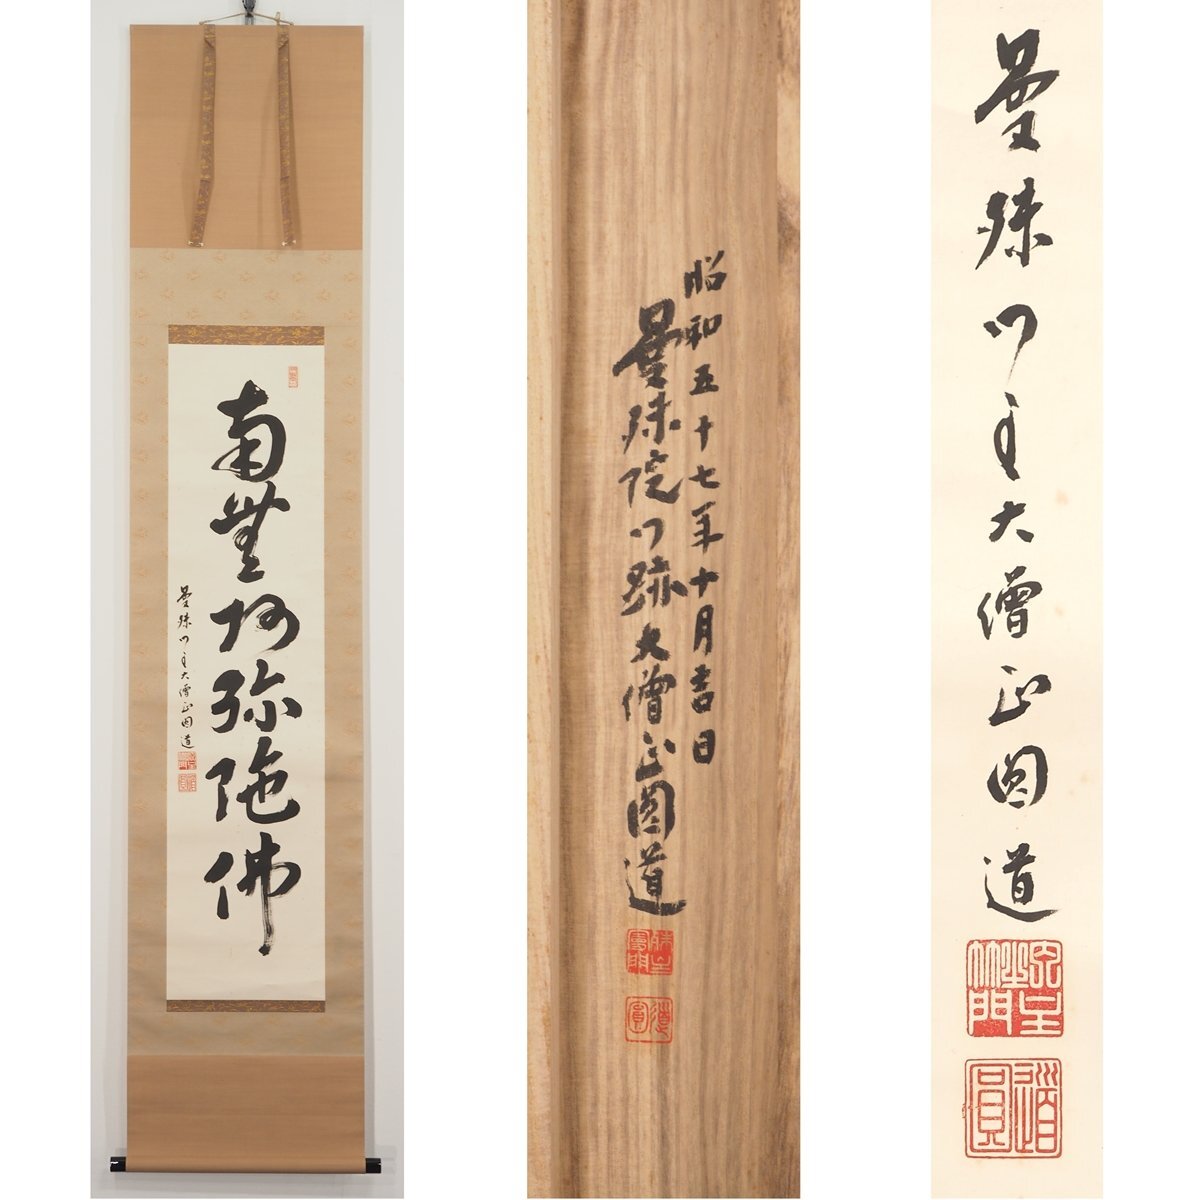 南無阿弥陀佛
曼殊門主大僧正圓道
昭和五十七年十月吉日
曼殊院門跡大僧正圓道
曼殊門主大僧正圓道
道圓